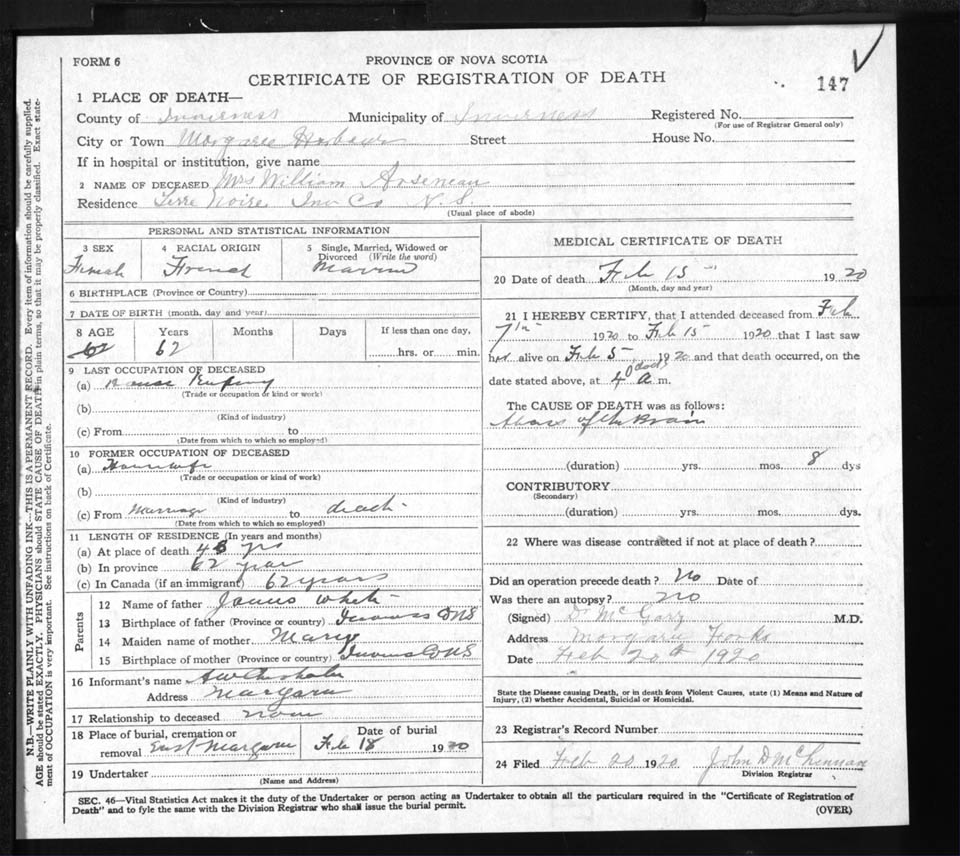 FORM 6
PROVINCE OF NOVA SCOTIA
CERTIFICATE OF REGISTRATION OF DEATH
147
1 PLACE OF DEATH—
County of Inverness Municipality of Inverness Registered No.
(For use of Registrar General only)
City or Town Margaree Harbour Street House No.
If in hospital or institution, give name
2 NAME OF DECEASED Mrs William Arseneau
Residence Terre Noire Inv Co N. S.
(Usual place of abode)
PERSONAL AND STATISTICAL INFORMATION
3 SEX 4 RACIAL ORIGIN 5 Single, Married, Widowed or Divorced (Write the word)
Female French Married
6 BIRTHPLACE (Province or Country)
7 DATE OF BIRTH (month, day and year)
8 AGE Years Months Days If less than one day,
62 62 hrs. or min.
9 LAST OCCUPATION OF DECEASED
(a) House Keeping
(Trade or occupation or kind or work)
(b)
(Kind of industry)
(c) From to
(Date from which to which so employed)
10 FORMER OCCUPATION OF DECEASED
(a) Housewife
(Trade or occupation or kind of work)
(b)
(Kind of industry)
(c) From Marriage to death
(Date from which to which so employed)
11 LENGTH OF RESIDENCE (In years and months)
(a) At place of death yrs
(b) In province 62 year
(c) In Canada (if an immigrant) 62 years
Parents
12 Name of father James White
13 Birthplace of father (Province or country) Inverness Co NS
14 Maiden name of mother Mary
15 Birthplace of mother (Province or country) Inverness Co NS
16 Informant's name A W Chisholm
Address Margaree
17 Relationship to deceased none
18 Place of burial, cremation or removal East Margaree Date of burial Feb 18 1920
19 Undertaker
(Name and Address)
MEDICAL CERTIFICATE OF DEATH
20 Date of death Feb 15 1920
(Month, day and year)
21 I HEREBY CERTIFY, that I attended deceased from Feb
7th 1920 to Feb 15 1920 that I last saw
her alive on Feb 5 1920 and that death occurred, on the
date stated above, at 4 oclock a m.
The CAUSE OF DEATH was as follows:
of the Brain
(duration) yrs. mos. 8 dys
CONTRIBUTORY
(Secondary)
(duration) yrs. mos. dys.
22 Where was disease contracted if not at place of death?
Did an operation precede death? No Date of
Was there an autopsy? No
(Signed) Dr McGarry M.D.
Address Margaree Forks
Date Feb 20th 1920
State the Disease causing Death, or in death from Violent Causes, state (1) Means and Nature of
Injury, (2) whether Accidental, Suicidal or Homicidal.
23 Registrar's Record Number
24 Filed Feb 20 1920 John D McLennan
Division Registrar
SEC. 46—Vital Statistics Act makes it the duty of the Undertaker or person acting as Undertaker to obtain all the particulars required in the "Certificate of Registration of
Death" and to fyle the same with the Division Registrar who shall issue the burial permit.
(OVER)
N.B.—WRITE PLAINLY WITH UNFADING INK—THIS IS A PERMANENT RECORD. Every item of information should be carefully supplied.
AGE should be stated EXACTLY. PHYSICIANS should STATE CAUSE OF DEATH in plain terms, so that it may be properly classified. Exact state-
ment of OCCUPATION is very important. See instructions on back of Certificate.